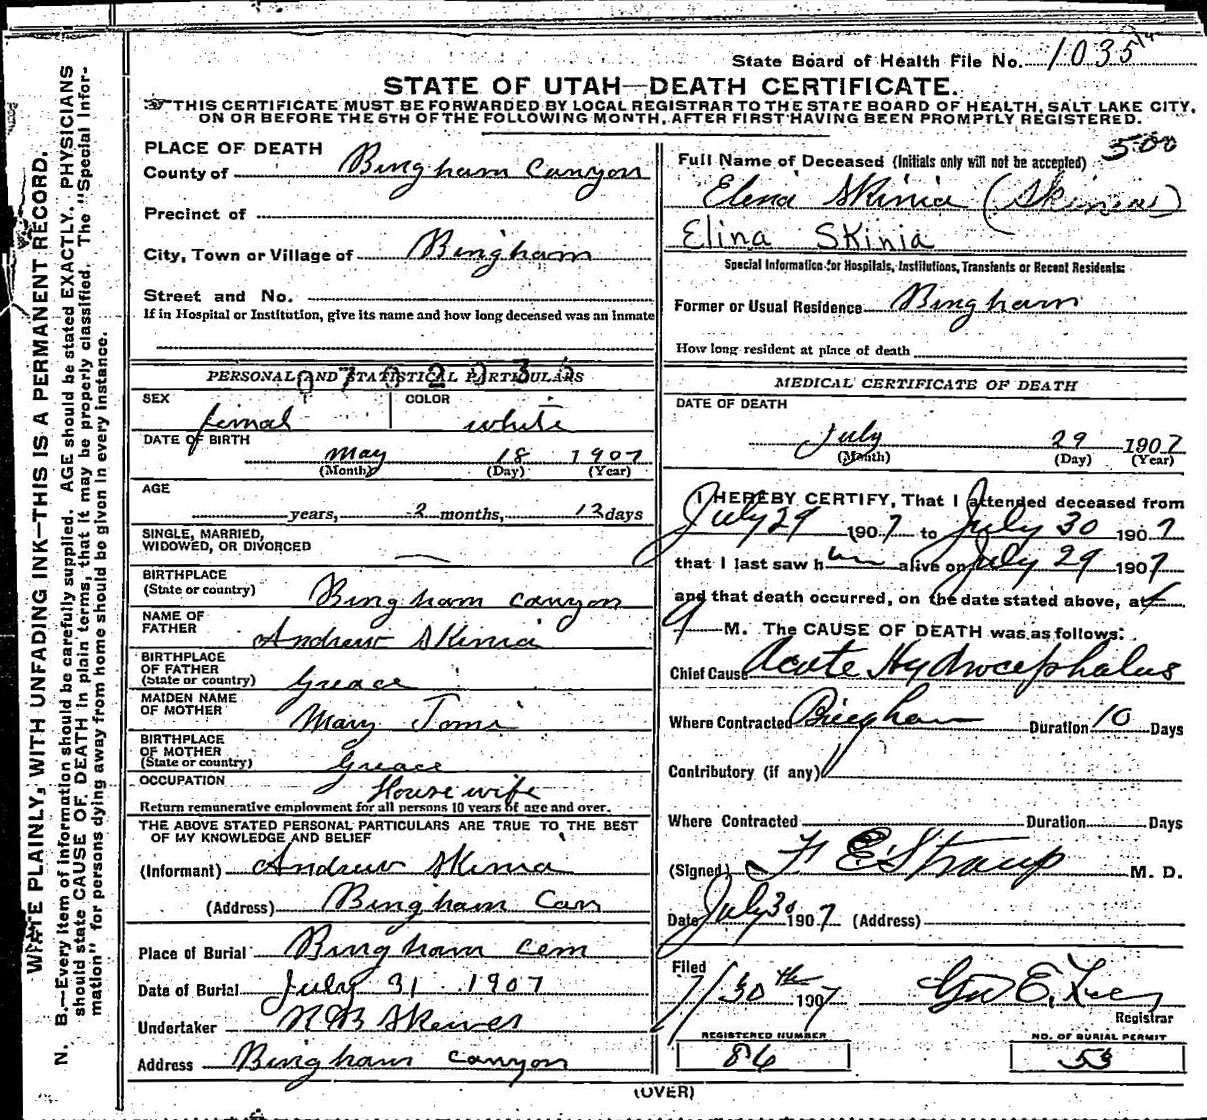 State Board of Health File No. 1035
STATE OF UTAH—DEATH CERTIFICATE.
THIS CERTIFICATE MUST BE FORWARDED BY LOCAL REGISTRAR TO THE STATE BOARD OF HEALTH, SALT LAKE CITY,
ON OR BEFORE THE 5TH OF THE FOLLOWING MONTH, AFTER FIRST HAVING BEEN PROMPTLY REGISTERED.
WRITE PLAINLY, WITH UNFADING INK—THIS IS A PERMANENT RECORD.
N. B.—Every item of information should be carefully supplied. AGE should be stated EXACTLY. PHYSICIANS
should state CAUSE OF DEATH in plain terms, that it may be properly classified. The "Special Infor-
mation" for persons dying away from home should be given in every instance.
PLACE OF DEATH
County of Bingham Canyon
Precinct of
City, Town or Village of Bingham
Street and No.
If in Hospital or Institution, give its name and how long deceased was an inmate
PERSONAL AND STATISTICAL PARTICULARS
SEX
femal
COLOR
white
DATE OF BIRTH
May 18 1907
(Month) (Day) (Year)
AGE
years, 2 months, 12 days
SINGLE, MARRIED,
WIDOWED, OR DIVORCED
BIRTHPLACE
(State or country) Bingham Canyon
NAME OF
FATHER Andrew Skinia
BIRTHPLACE
OF FATHER
(State or country) Greace
MAIDEN NAME
OF MOTHER Mary Tomi
BIRTHPLACE
OF MOTHER
(State or country) Greace
OCCUPATION House wife
Return remunerative employment for all persons 10 years of age and over.
THE ABOVE STATED PERSONAL PARTICULARS ARE TRUE TO THE BEST
OF MY KNOWLEDGE AND BELIEF
(Informant) Andrew Skinia
(Address) Bingham Can
Place of Burial Bingham Cem
Date of Burial July 31 1907
Undertaker N B Skewes
Address Bingham Canyon
500
Full Name of Deceased (Initials only will not be accepted)
Elena Skinia (Skinias)
Elina Skinia
Special Information for Hospitals, Institutions, Transients or Recent Residents:
Former or Usual Residence Bingham
How long resident at place of death
MEDICAL CERTIFICATE OF DEATH
DATE OF DEATH
July 29 1907
(Month) (Day) (Year)
I HEREBY CERTIFY, That I attended deceased from
July 29 1907 to July 30 1907
that I last saw h alive on July 29 1907
and that death occurred, on the date stated above, at
M. The CAUSE OF DEATH was as follows:
Chief Cause Acute Hydrocephalus
Where Contracted Bingham Duration 10 Days
Contributory (if any)
Where Contracted Duration Days
(Signed) F E Straup M. D.
Date July 30 1907 (Address)
Filed
7/30th 1907 Geo E. Lee
Registrar
REGISTERED NUMBER
86
NO. OF BURIAL PERMIT
53
(OVER)